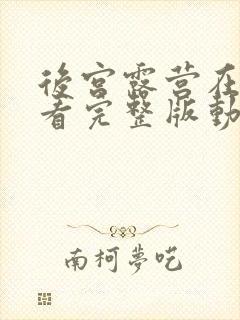 後宮露营在
看完整版動
南柯夢呓